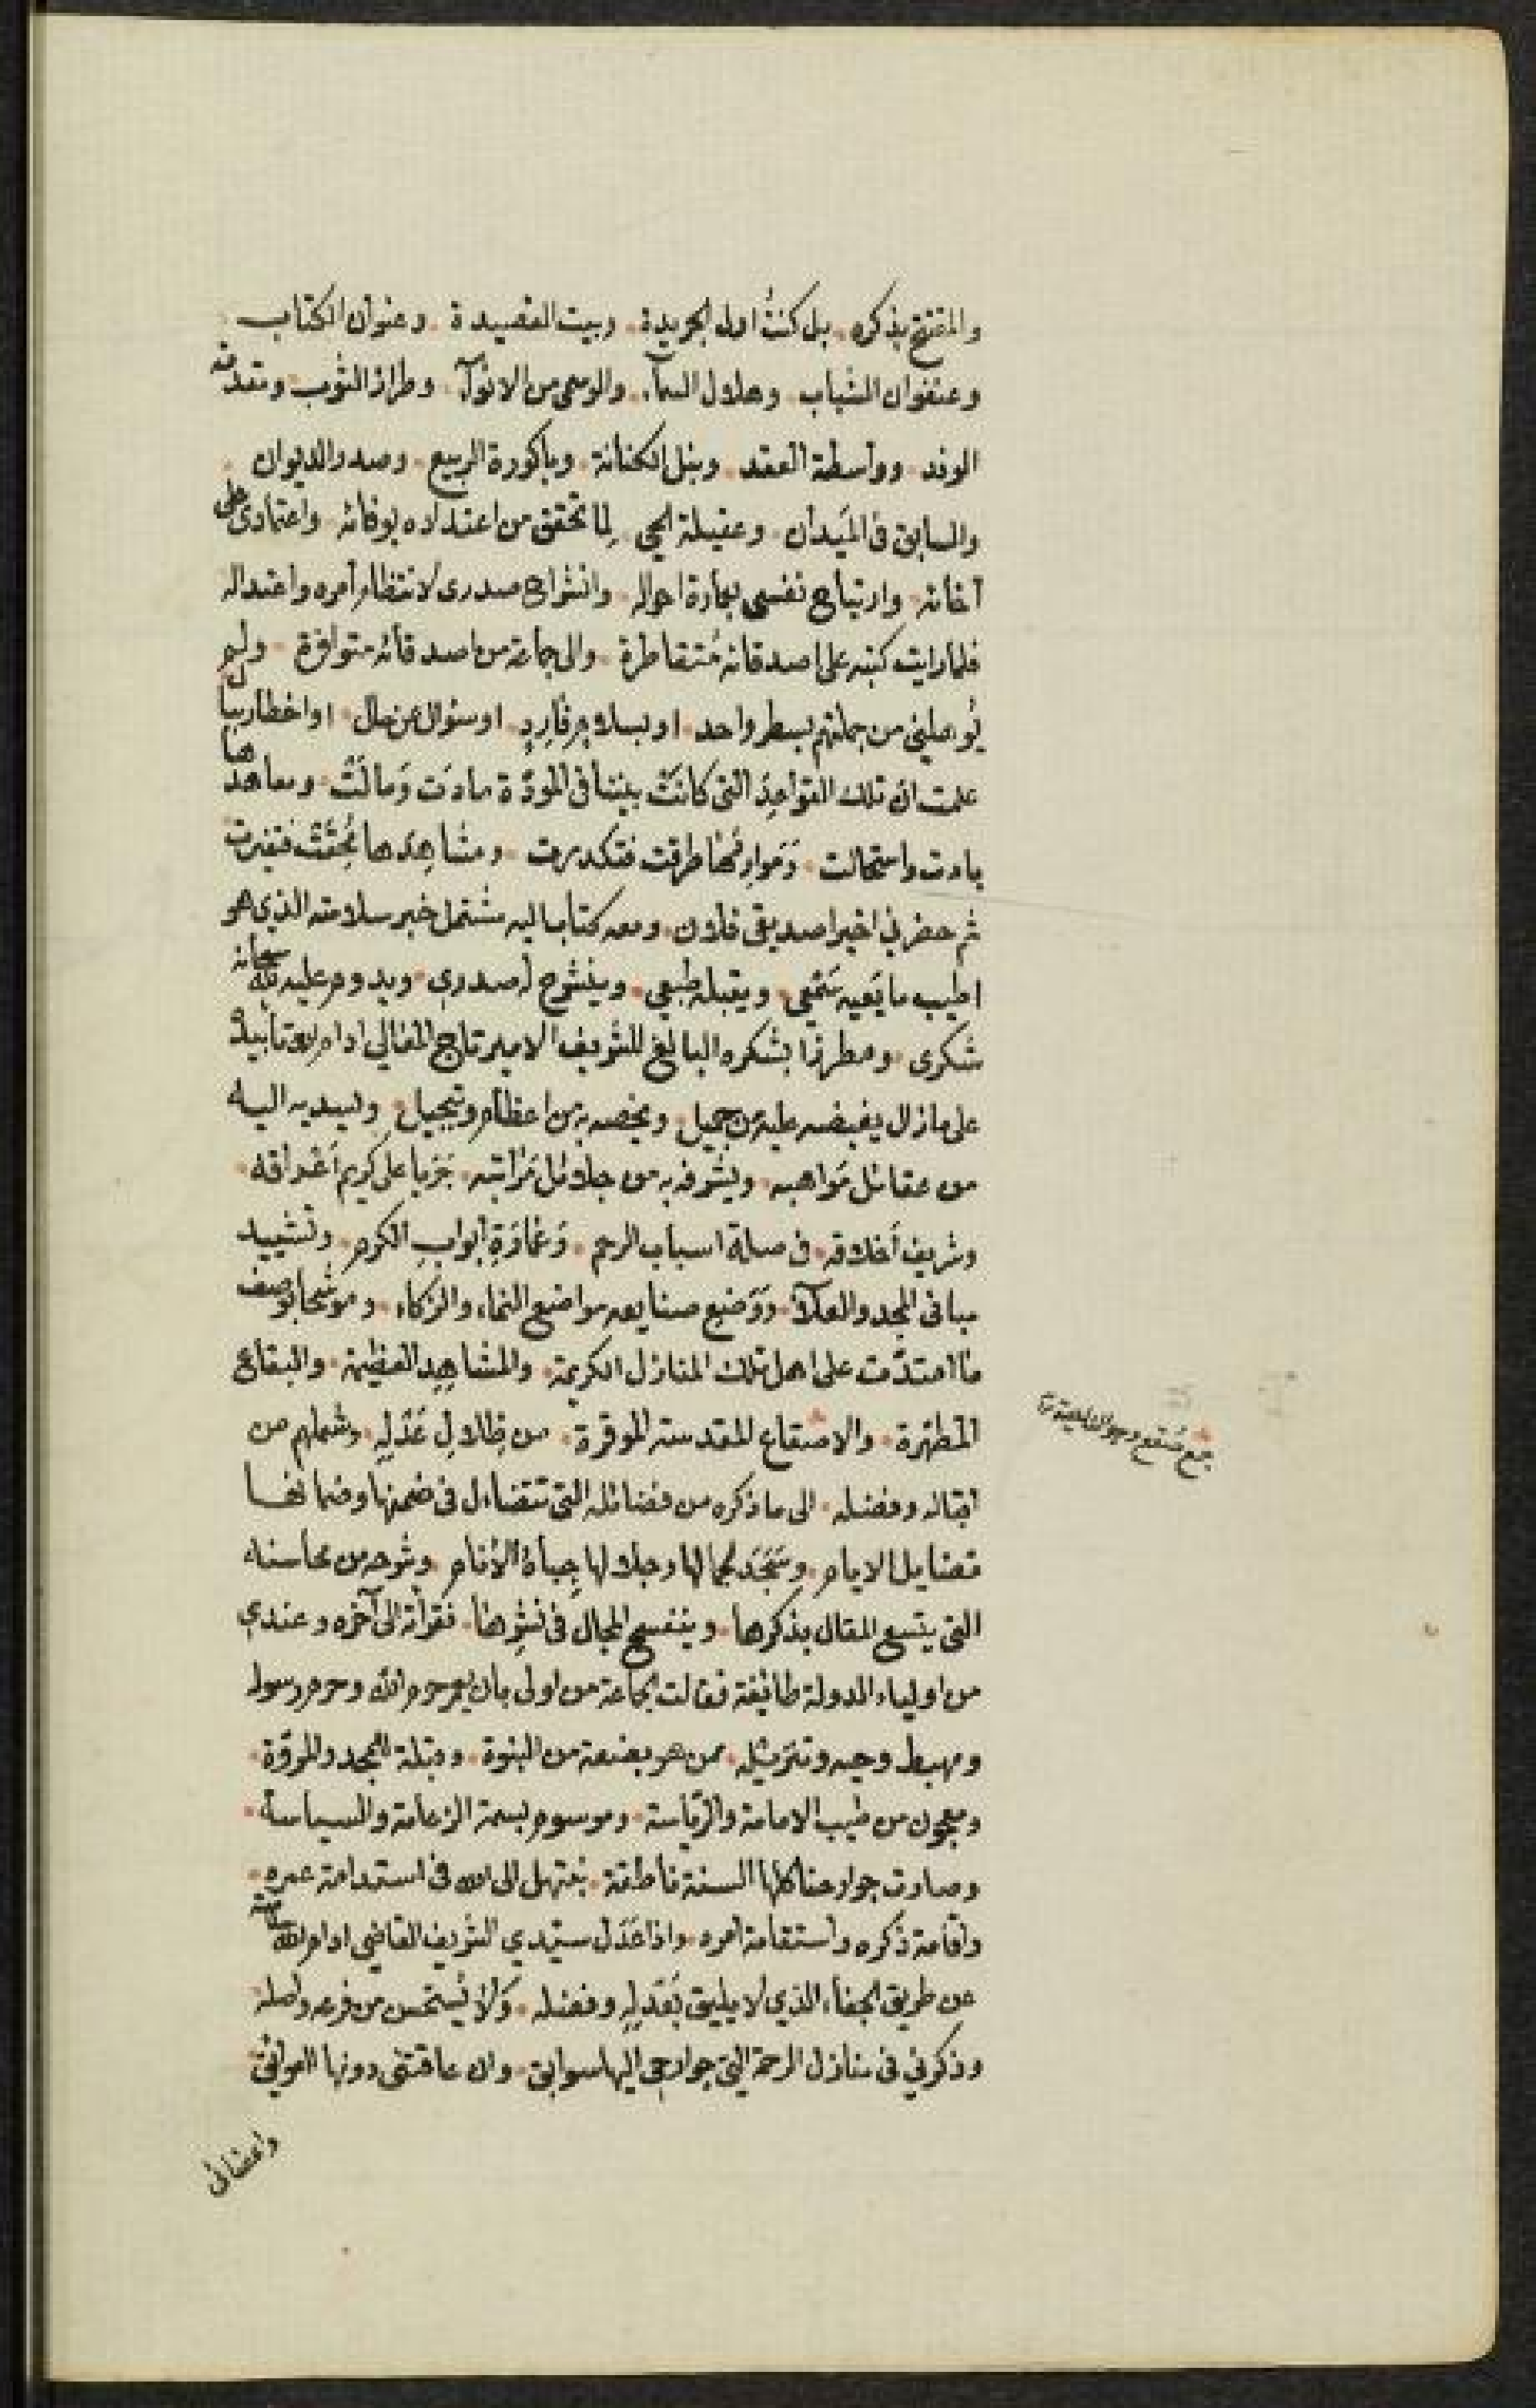 والمفتتح بذكره. بل كنتُ اول الجريدة. وبيت القصيدة. وعنوان الكتاب
وعنفوان الشباب. وهلال السمآء. والوسمي من الانوآء. وطراز الثوب. ومقدمة
الوفد. وواسطة العقد. ونبل الكنانة. وباكورة الربيع. وصدر الديوان
والسابق في الميَدان. وعقيلة الحي. لِما تحقق من اعتداده بوفائه. واعتمادى على
اخائه. وارتياح نفسي بعمارة احواله. وانشراح صدرى لانتظام امره واعتداله
فلما رايت كتبه على اصدقائه مُتقاطرة. والى جماعة من اصدقائه متوافرة. ولم
يُوصلني من جملتهم بسطر واحد. او بسلام فارِدٍ. او سئوال عن حال. او اخطار ببال
علمت ان تلك القواعِدَ التي كانَتْ بيننا في المودّة مادَت وَمالَتْ. ومعاهدها
بادت واستحالت. وَمَوارِدُها طرقت فتكدرت. ومشاهِدها فتغيرت
ثم حضرني اخيرا صديقي فلان. ومعه كتاب اليه مشتمل خبر سلامته الذي هو
اطيب ما يَعيه سَمْعي. ويقبله طبعي. وينشرح له صدري. ويدوم عليه لله سبحانه
شكرى. ومطرزا بشكره البالغ للشريف الامير تاج المعالي ادام الله تاييده
على ما زال يفيضه عليه من جميل. ويخصه به من اعظام وتبجيل. ويسديه اليه
من عقائل مَواهبه. ويشرفه به من جلائل مَراتبه. جَريا على كريم اَعْراقه
وشريف اَخلاقه. في صلة اسباب الرحم. وَعمَارَةِ اَبواب الكرم. وتشييد
مباني المجد والعلآء. وَوَضع صنايعه مواضع النماء والزكاء. وموشحا بوصف
ما امتدّت على اهل تلك المنازل الكريمة. والمشاهِد العظيمة. والبقاع
المطهرة. والاصقاع المقدسة الموقرة. من ظِلالِ عَدْلِهِ. وشملهم من
افضاله وفضله. الى ما ذكره من فضائله التي تتضاءل في ضمنها وضمانها
فضايل الايام. وسَجَدَ لجمالها وجلالها جباهُ الأنام. وشرحه من محاسنه
التي يتسع المقال بذكرها. وينفسح المجال في نشرها. فقرأته الى آخره وعندي
من اولياء الدولة طائفة فقالت الجماعة من اولى بان يعمر حرم الله وحرم رسوله
ومهبط وحيه وتنزيله. ممن هو بضعة من النبوة. وقبلة للمجد والمروّة
ومعجون من طيب الامامة والرّياسة. وموسوم بسمة الزعامة والسياسة
وصارت جوارحنا كلها السنة ناطقة. نبتهل الى الله في استدامة عمره
واقامة ذكره واستقامة امره. واذا عَدَل سيّدي الشريف القاضي ادام الله سلامته
عن طريق الجفاء الذي لا يليق بعَدْلِهِ وفضله. وَلا يُستحسن من فرعه واصله
وذكرني في منازل الرحمة التي جوارحي اليها سوابق. وان عاقتني دونها العوائق
جمع صقع وهو
واعضائي